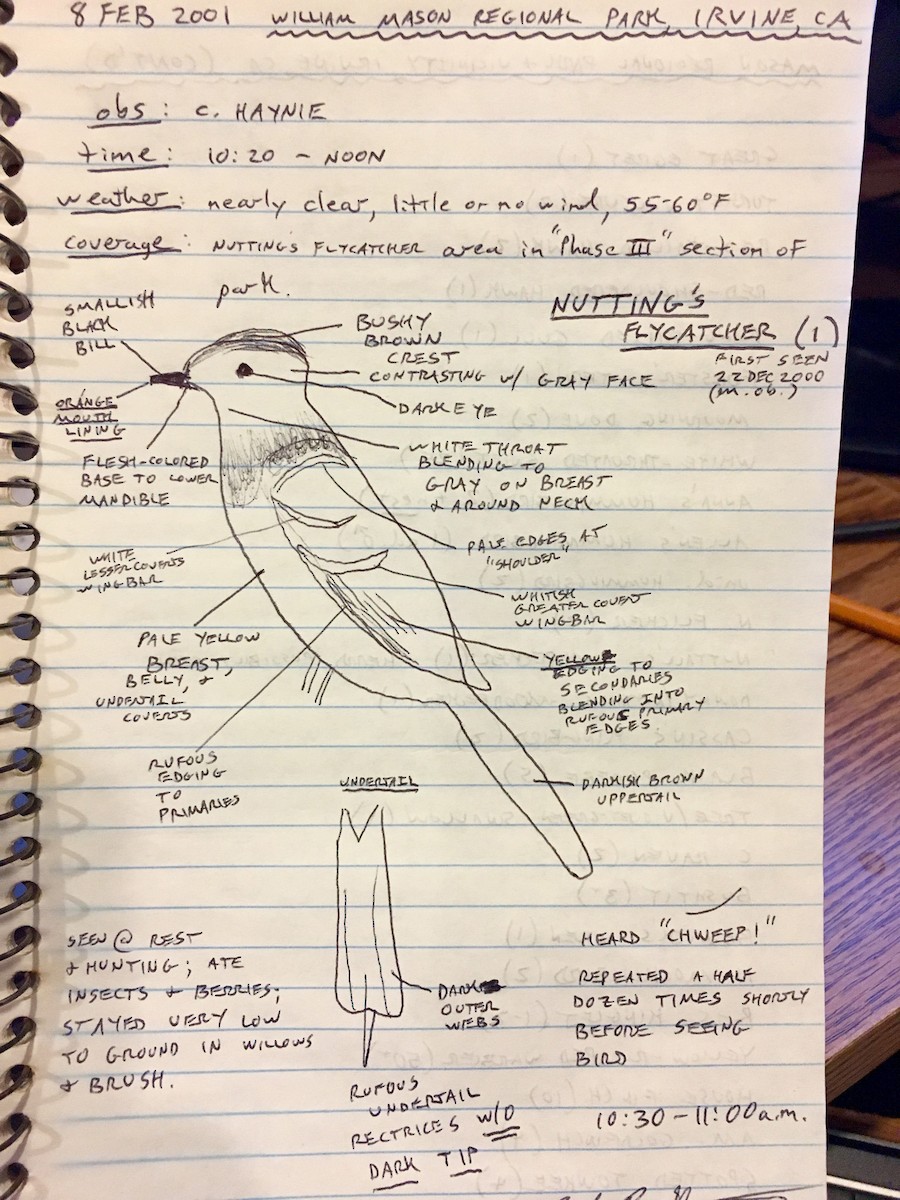 8 FEB 2001 WILLIAM MASON REGIONAL PARK, IRVINE, CA
obs: C. HAYNIE
time: 10:20 - NOON
weather: nearly clear, little or no wind, 55-60°F
coverage: NUTTING'S FLYCATCHER area in "Phase III" section of
park.
NUTTING'S
FLYCATCHER (1)
FIRST SEEN
22 DEC 2000
(m. ob.)
SMALLISH
BLACK
BILL
BUSHY
BROWN
CREST
CONTRASTING W/ GRAY FACE
DARK EYE
ORANGE
MOUTH
LINING
FLESH-COLORED
BASE TO LOWER
MANDIBLE
WHITE THROAT
BLENDING TO
GRAY ON BREAST
& AROUND NECK
PALE EDGES AT
"SHOULDER"
WHITE
LESSER COVERTS
WINGBAR
WHITISH
GREATER COVERT
WINGBAR
PALE YELLOW
BREAST,
BELLY, &
UNDERTAIL
COVERTS
YELLOW
EDGING TO
SECONDARIES
BLENDING INTO
RUFOUS PRIMARY
EDGES
RUFOUS
EDGING
TO
PRIMARIES
DARKISH BROWN
UPPERTAIL
UNDERTAIL
DARK
OUTER
WEBS
RUFOUS
UNDERTAIL
RECTRICES W/O
DARK TIP
SEEN @ REST
& HUNTING; ATE
INSECTS & BERRIES;
STAYED VERY LOW
TO GROUND IN WILLOWS
& BRUSH.
HEARD "CHWEEP!"
REPEATED A HALF
DOZEN TIMES SHORTLY
BEFORE SEEING
BIRD
10:30 - 11:00 a.m.